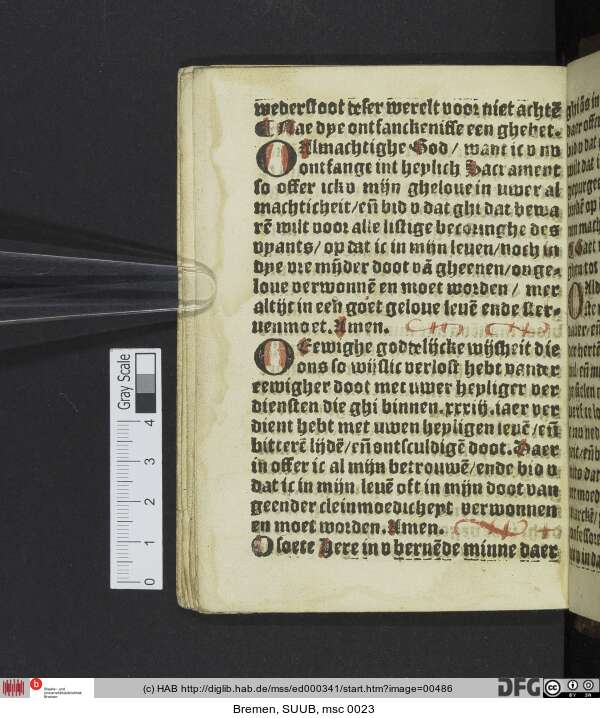 wederstoot deser werelt voor niet achtē
¶ Nae dye ontfanckenisse een ghebet.
O Almachtighe God / want ic v nv
ontfange int heylich Sacrament
so offer ick v mijn gheloue in uwer al
machticheit/eñ bid v dat ghi dat bewa
rē wilt voor alle listige becoringhe des
vyants/ op dat ic in mijn leuen/noch in
dye vre mijnder doot vā gheenen/onge-
loue verwonnē en moet worden / mer
altijt in een goet geloue leuē ende ster-
uen moet. Amen.
O Eewighe godtelijcke wijsheit die
ons so wijslic verlost hebt vander
eewigher doot met uwer heyliger ver
diensten die ghi binnen.xxxiij.iaer ver
dient hebt met uwen heyligen leuē/eñ
bitterē lijdē/eñ ontsculdigē doot. Daer
in offer ic al mijn betrouwē/ende bid v
dat ic in mijn leuē oft in mijn doot van
geender cleinmoedicheyt verwonnen
en moet worden. Amen.
O soete Here in v beruēde minne daer
Gray Scale
4
3
2
1
0
(c) HAB http://diglib.hab.de/mss/ed000341/start.htm?image=00486
DFG
Bremen, SUUB, msc 0023